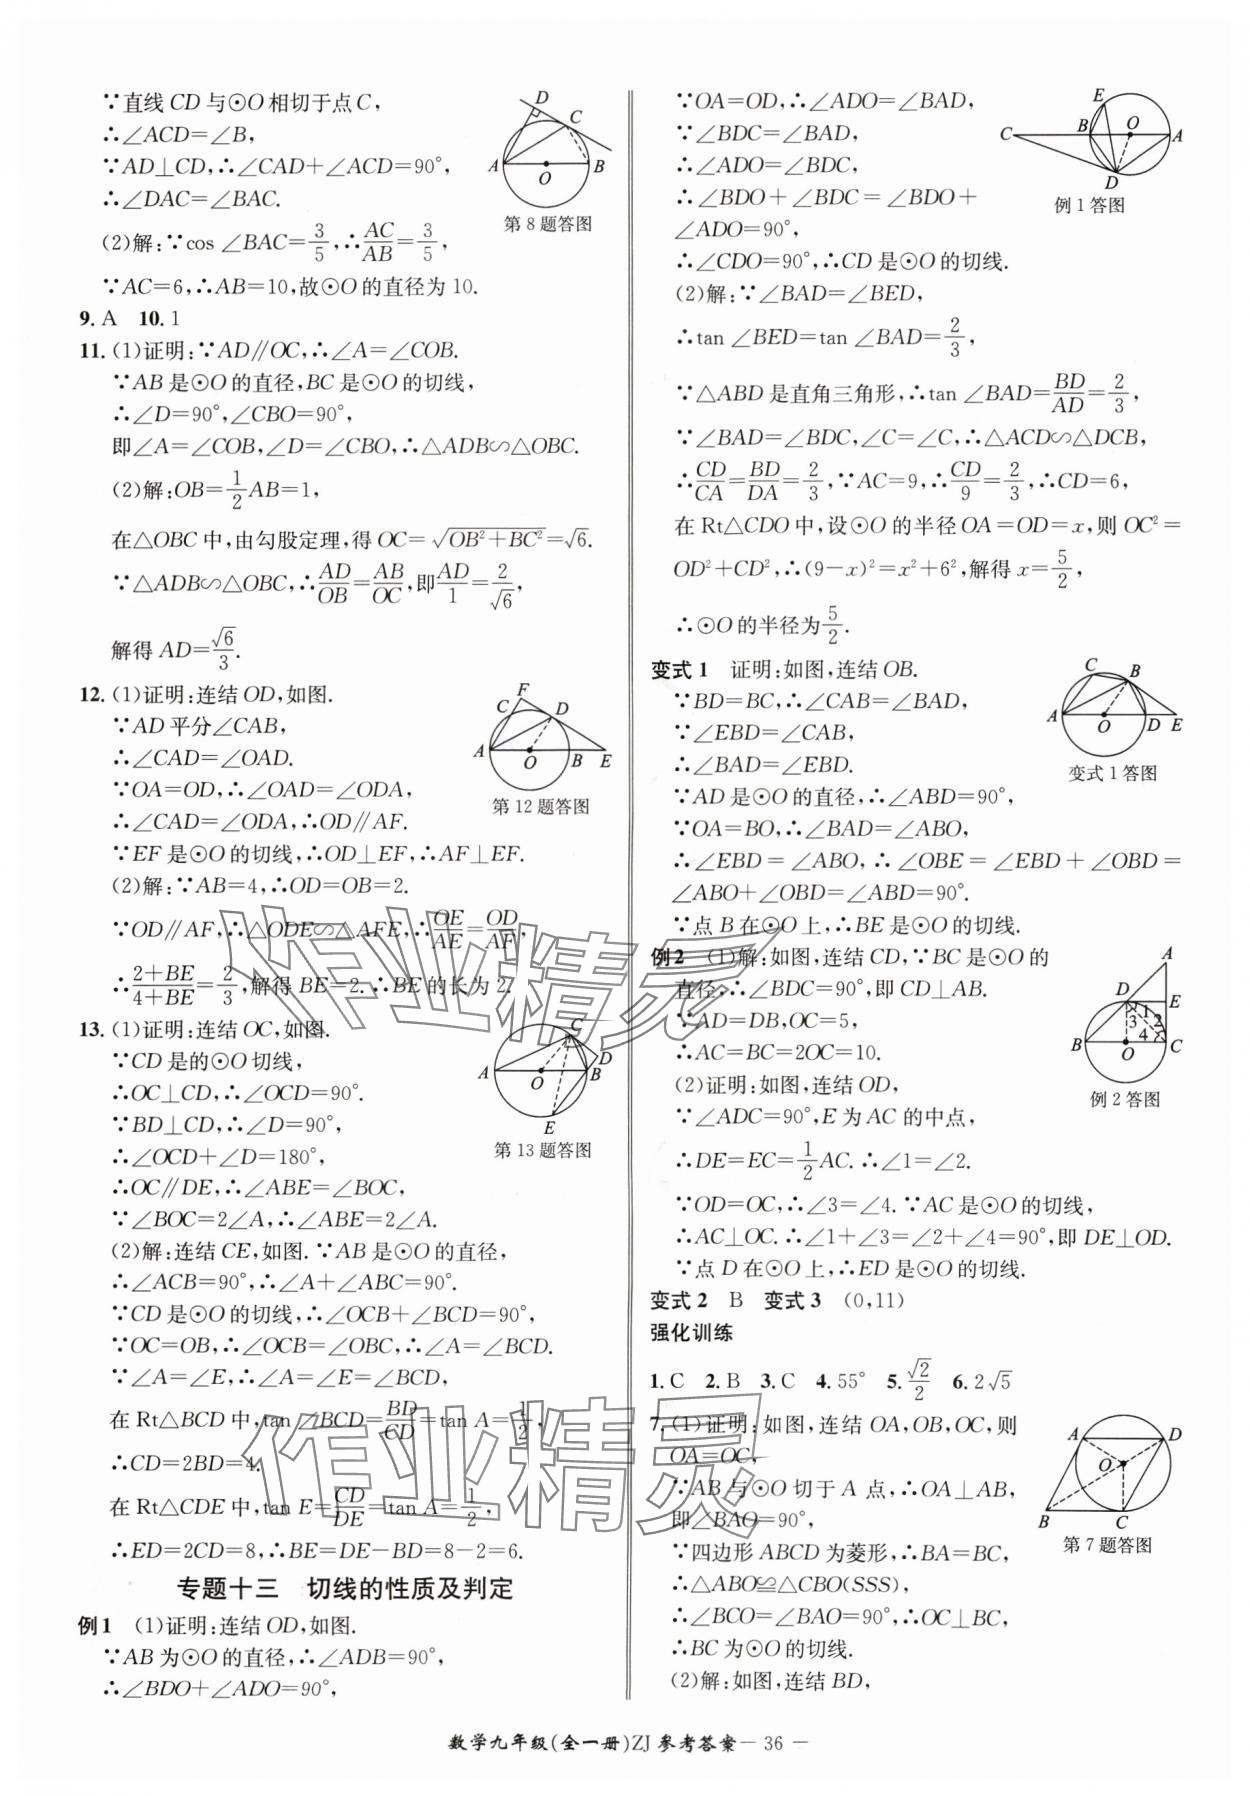 ∵直线CD与⊙O相切于点C，
∴∠ACD=∠B，
∵AD⊥CD，∴∠CAD+∠ACD=90°，
∴∠DAC=∠BAC.
第8题答图
(2)解：∵cos∠BAC=3/5，∴AC/AB=3/5，
∵AC=6，∴AB=10，故⊙O的直径为10.
9. A 10. 1
11. (1)证明：∵AD∥OC，∴∠A=∠COB.
∵AB是⊙O的直径，BC是⊙O的切线，
∴∠D=90°，∠CBO=90°，
即∠A=∠COB，∠D=∠CBO，∴△ADB∽△OBC.
(2)解：OB=1/2AB=1，
在△OBC中，由勾股定理，得OC=√(OB²+BC²)=√6.
∵△ADB∽△OBC，∴AD/OB=AB/OC，即AD/1=2/√6，
解得AD=√6/3.
12. (1)证明：连结OD，如图.
∵AD平分∠CAB，
∴∠CAD=∠OAD.
∵OA=OD，∴∠OAD=∠ODA，
∴∠CAD=∠ODA，∴OD∥AF.
第12题答图
∵EF是⊙O的切线，∴OD⊥EF，∴AF⊥EF.
(2)解：∵AB=4，∴OD=OB=2.
∵OD∥AF，∴△ODE∽△AFE，∴OE/AE=OD/AF，
∴2+BE/4+BE=2/3，解得BE=2.∴BE的长为2.
13. (1)证明：连结OC，如图.
∵CD是的⊙O切线，
∴OC⊥CD，∴∠OCD=90°.
∵BD⊥CD，∴∠D=90°，
∴∠OCD+∠D=180°，
第13题答图
∴OC∥DE，∴∠ABE=∠BOC，
∵∠BOC=2∠A，∴∠ABE=2∠A.
(2)解：连结CE，如图.∵AB是⊙O的直径，
∴∠ACB=90°，∴∠A+∠ABC=90°.
∵CD是⊙O的切线，∴∠OCB+∠BCD=90°，
∵OC=OB，∴∠OCB=∠OBC，∴∠A=∠BCD.
∵∠A=∠E，∴∠A=∠E=∠BCD，
在Rt△BCD中，tan∠BCD=BD/CD=tan A=1/2，
∴CD=2BD=4.
在Rt△CDE中，tan E=CD/DE=tan A=1/2，
∴ED=2CD=8，∴BE=DE−BD=8−2=6.
专题十三 切线的性质及判定
例1 (1)证明：连结OD，如图.
∵AB为⊙O的直径，∴∠ADB=90°，
∴∠BDO+∠ADO=90°，
∵OA=OD，∴∠ADO=∠BAD，
∵∠BDC=∠BAD，
∴∠ADO=∠BDC，
∴∠BDO+∠BDC=∠BDO+
∠ADO=90°，
例1答图
∴∠CDO=90°，∴CD是⊙O的切线.
(2)解：∵∠BAD=∠BED，
∴tan∠BED=tan∠BAD=2/3，
∵△ABD是直角三角形，∴tan∠BAD=BD/AD=2/3，
∵∠BAD=∠BDC，∠C=∠C，∴△ACD∽△DCB，
∴CD/CA=BD/DA=2/3，∵AC=9，∴CD/9=2/3，∴CD=6，
在Rt△CDO中，设⊙O的半径OA=OD=x，则OC²=
OD²+CD²，∴(9−x)²=x²+6²，解得x=5/2，
∴⊙O的半径为5/2.
变式1 证明：如图，连结OB.
∵BD=BC，∴∠CAB=∠BAD，
∵∠EBD=∠CAB，
∴∠BAD=∠EBD.
∵AD是⊙O的直径，∴∠ABD=90°，
变式1答图
∵OA=BO，∴∠BAD=∠ABO，
∴∠EBD=∠ABO，∴∠OBE=∠EBD+∠OBD=
∠ABO+∠OBD=∠ABD=90°.
∵点B在⊙O上，∴BE是⊙O的切线.
例2 (1)解：如图，连结CD，∵BC是⊙O的
直径，∴∠BDC=90°，即CD⊥AB.
∵AD=DB，OC=5，
∴AC=BC=2OC=10.
(2)证明：如图，连结OD，
例2答图
∵∠ADC=90°，E为AC的中点，
∴DE=EC=1/2AC.∴∠1=∠2.
∵OD=OC，∴∠3=∠4.∵AC是⊙O的切线，
∴AC⊥OC.∴∠1+∠3=∠2+∠4=90°，即DE⊥OD.
∵点D在⊙O上，∴ED是⊙O的切线.
变式2 B 变式3 (0,11)
强化训练
1. C 2. B 3. C 4. 55° 5. √2/2 6. 2√5
7. (1)证明：如图，连结OA，OB，OC，则
OA=OC，
∵AB与⊙O切于A点，∴OA⊥AB，
即∠BAO=90°，
第7题答图
∵四边形ABCD为菱形，∴BA=BC，
∴△ABO≌△CBO(SSS)，
∴∠BCO=∠BAO=90°，∴OC⊥BC，
∴BC为⊙O的切线.
(2)解：如图，连结BD，
数学九年级(全一册)ZJ 参考答案— 36 —
作业精灵
作业精灵